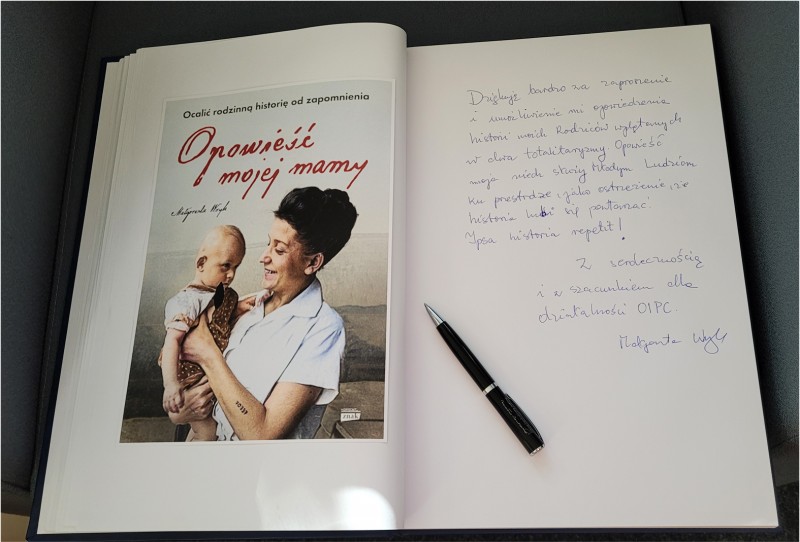 Ocalić rodzinną historię od zapomnienia
Opowieść
mojej mamy
Małgorzata Wryk
znak
Dziękuję bardzo za zaproszenie
i umożliwienie mi opowiedzenia
historii moich Rodziców wplątanych
w dwa totalitaryzmy. Opowieść
moja niech służy Młodym Ludziom
ku przestrodze, jako ostrzeżenie, że
historia lubi się powtarzać.
Ipsa historia repetit!
Z serdecznością
i z szacunkiem dla
działalności OIPC.
Małgorzata Wryk